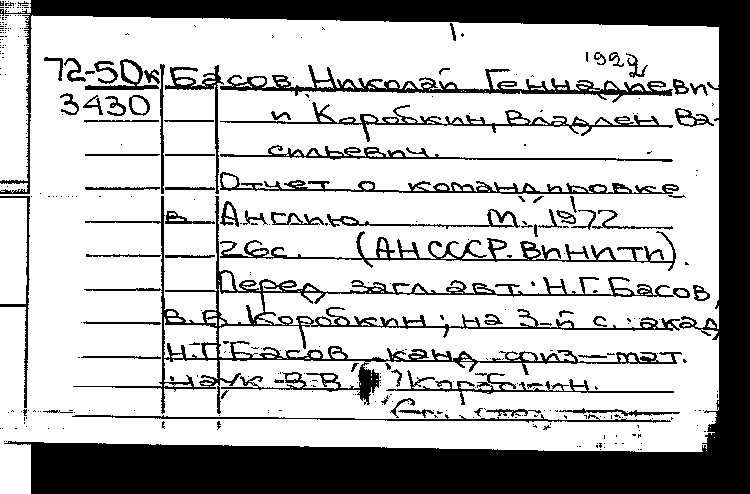 1.
1922
72-50к Басов, Николай Геннадиевич
3430 и Коробкин, Владлен Ва-
сильевич.
Отчет о командировке
в Англию. М., 1972
26с. (АН СССР. ВИНИТИ).
Перед загл. авт.: Н.Г. Басов,
В.В. Коробкин; на 3-й с.: акад
Н.Г. Басов, канд. физ-мат.
наук В.В. Коробкин.